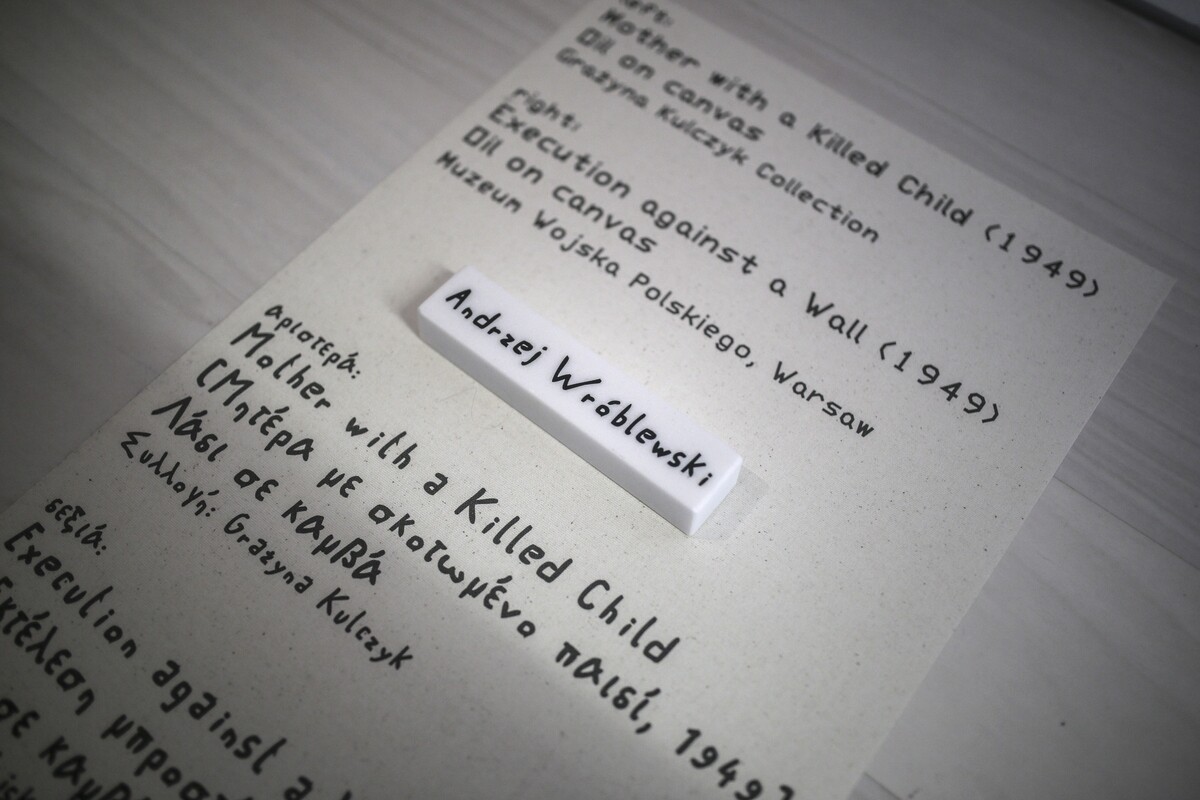 left:
Mother with a Killed Child (1949)
Oil on canvas
Grażyna Kulczyk Collection
right:
Execution against a Wall (1949)
Oil on canvas
Muzeum Wojska Polskiego, Warsaw
Andrzej Wróblewski
αριστερά:
Mother with a Killed Child
(Μητέρα με σκοτωμένο παιδί, 1949)
Λάδι σε καμβά
Συλλογή: Grażyna Kulczyk
δεξιά:
Execution against a
Εκτέλεση
σε